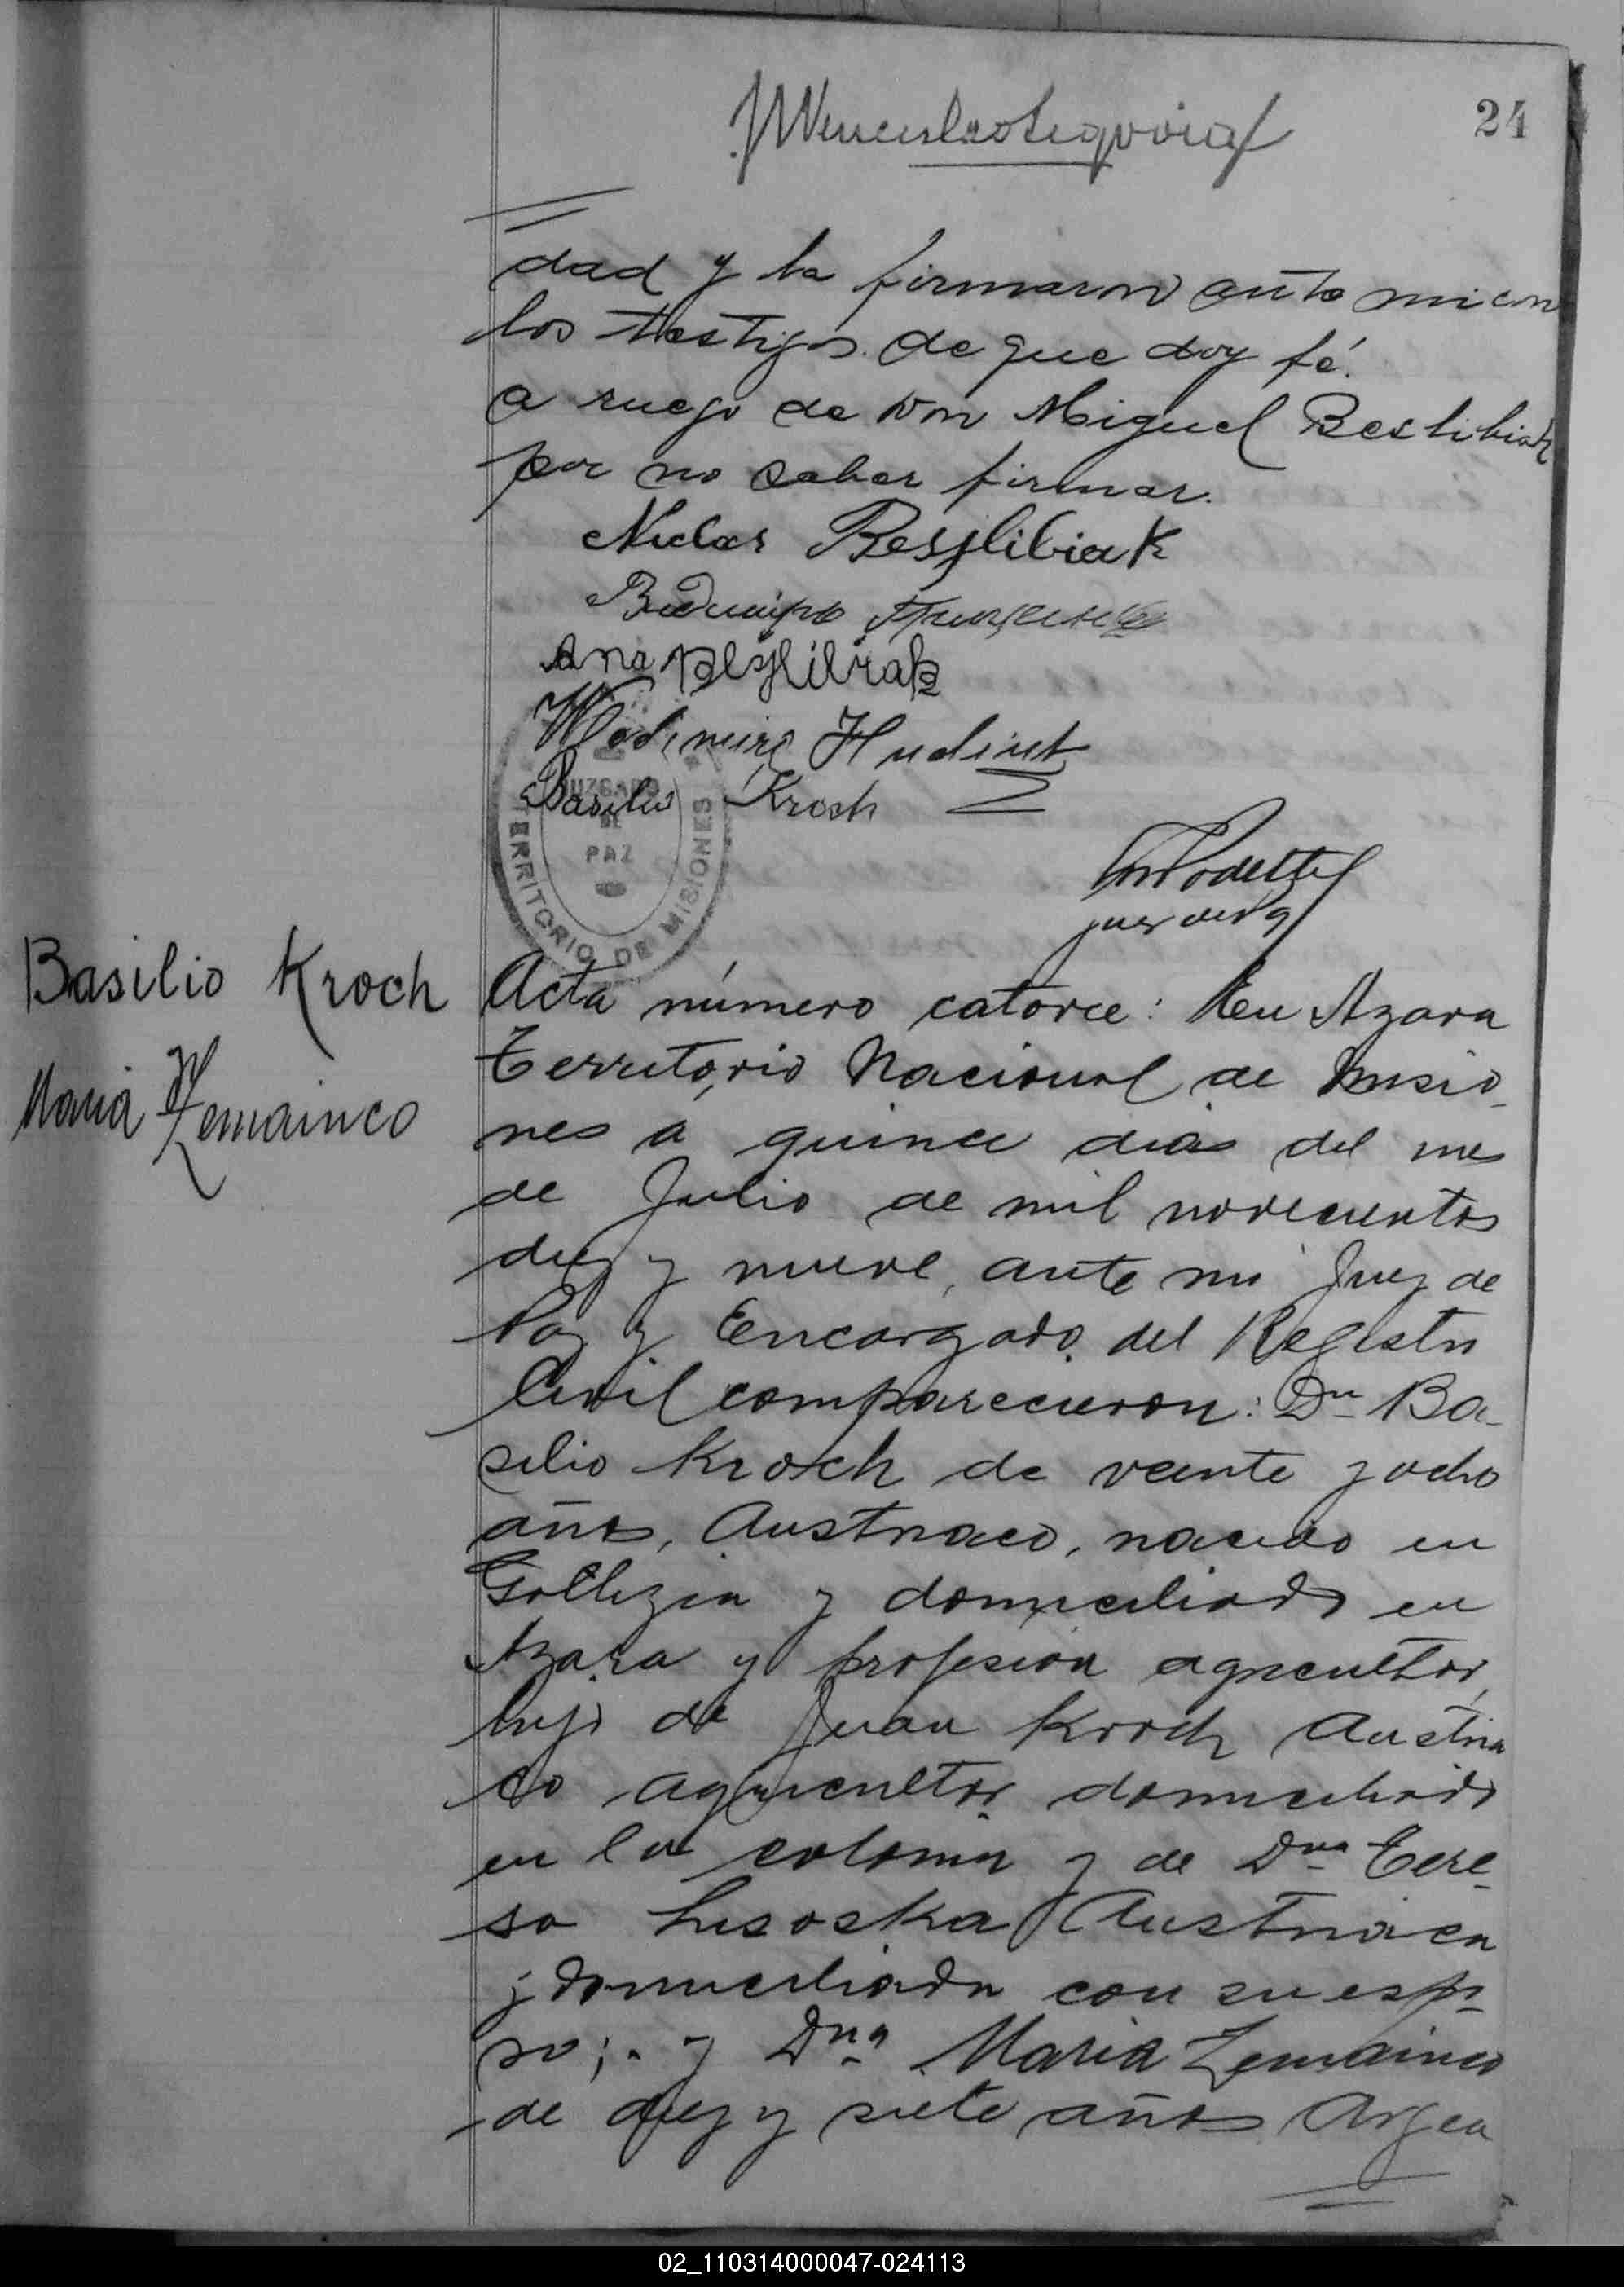 24
dad y la firmaron ante mi con
los testigos de que doy fé.
a ruego de Don Miguel Beslibiak
por no saber firmar.
Niclas Besjlibiak
Ana
Wlodimiro Hudiut
Basilio Kroch
JUZGADO
DE
PAZ
TERRITORIO DE MISIONES
Podetti
juez de Paz
Basilio Kroch
Maria Zemainco
Acta número catorce: En Azara
Territorio Nacional de Misio-
nes a quince dias del mes
de Julio de mil novecientos
diez y nueve, ante mi Juez de
Paz y Encargado del Registro
Civil comparecieron: Dn Ba-
silio Kroch de veinte y ocho
años, Austriaco, nacido en
Gallizia y domiciliado en
Azara y profesión agricultor,
hijo de Juan Kroch Austria
co agricultor domiciliado
en la colonia y de Dna Tere-
sa Lisoska Austriaca
y domiciliada con su espo-
so;. y Dna Maria Zemainco
de diez y siete años Argen
02_110314000047-024113